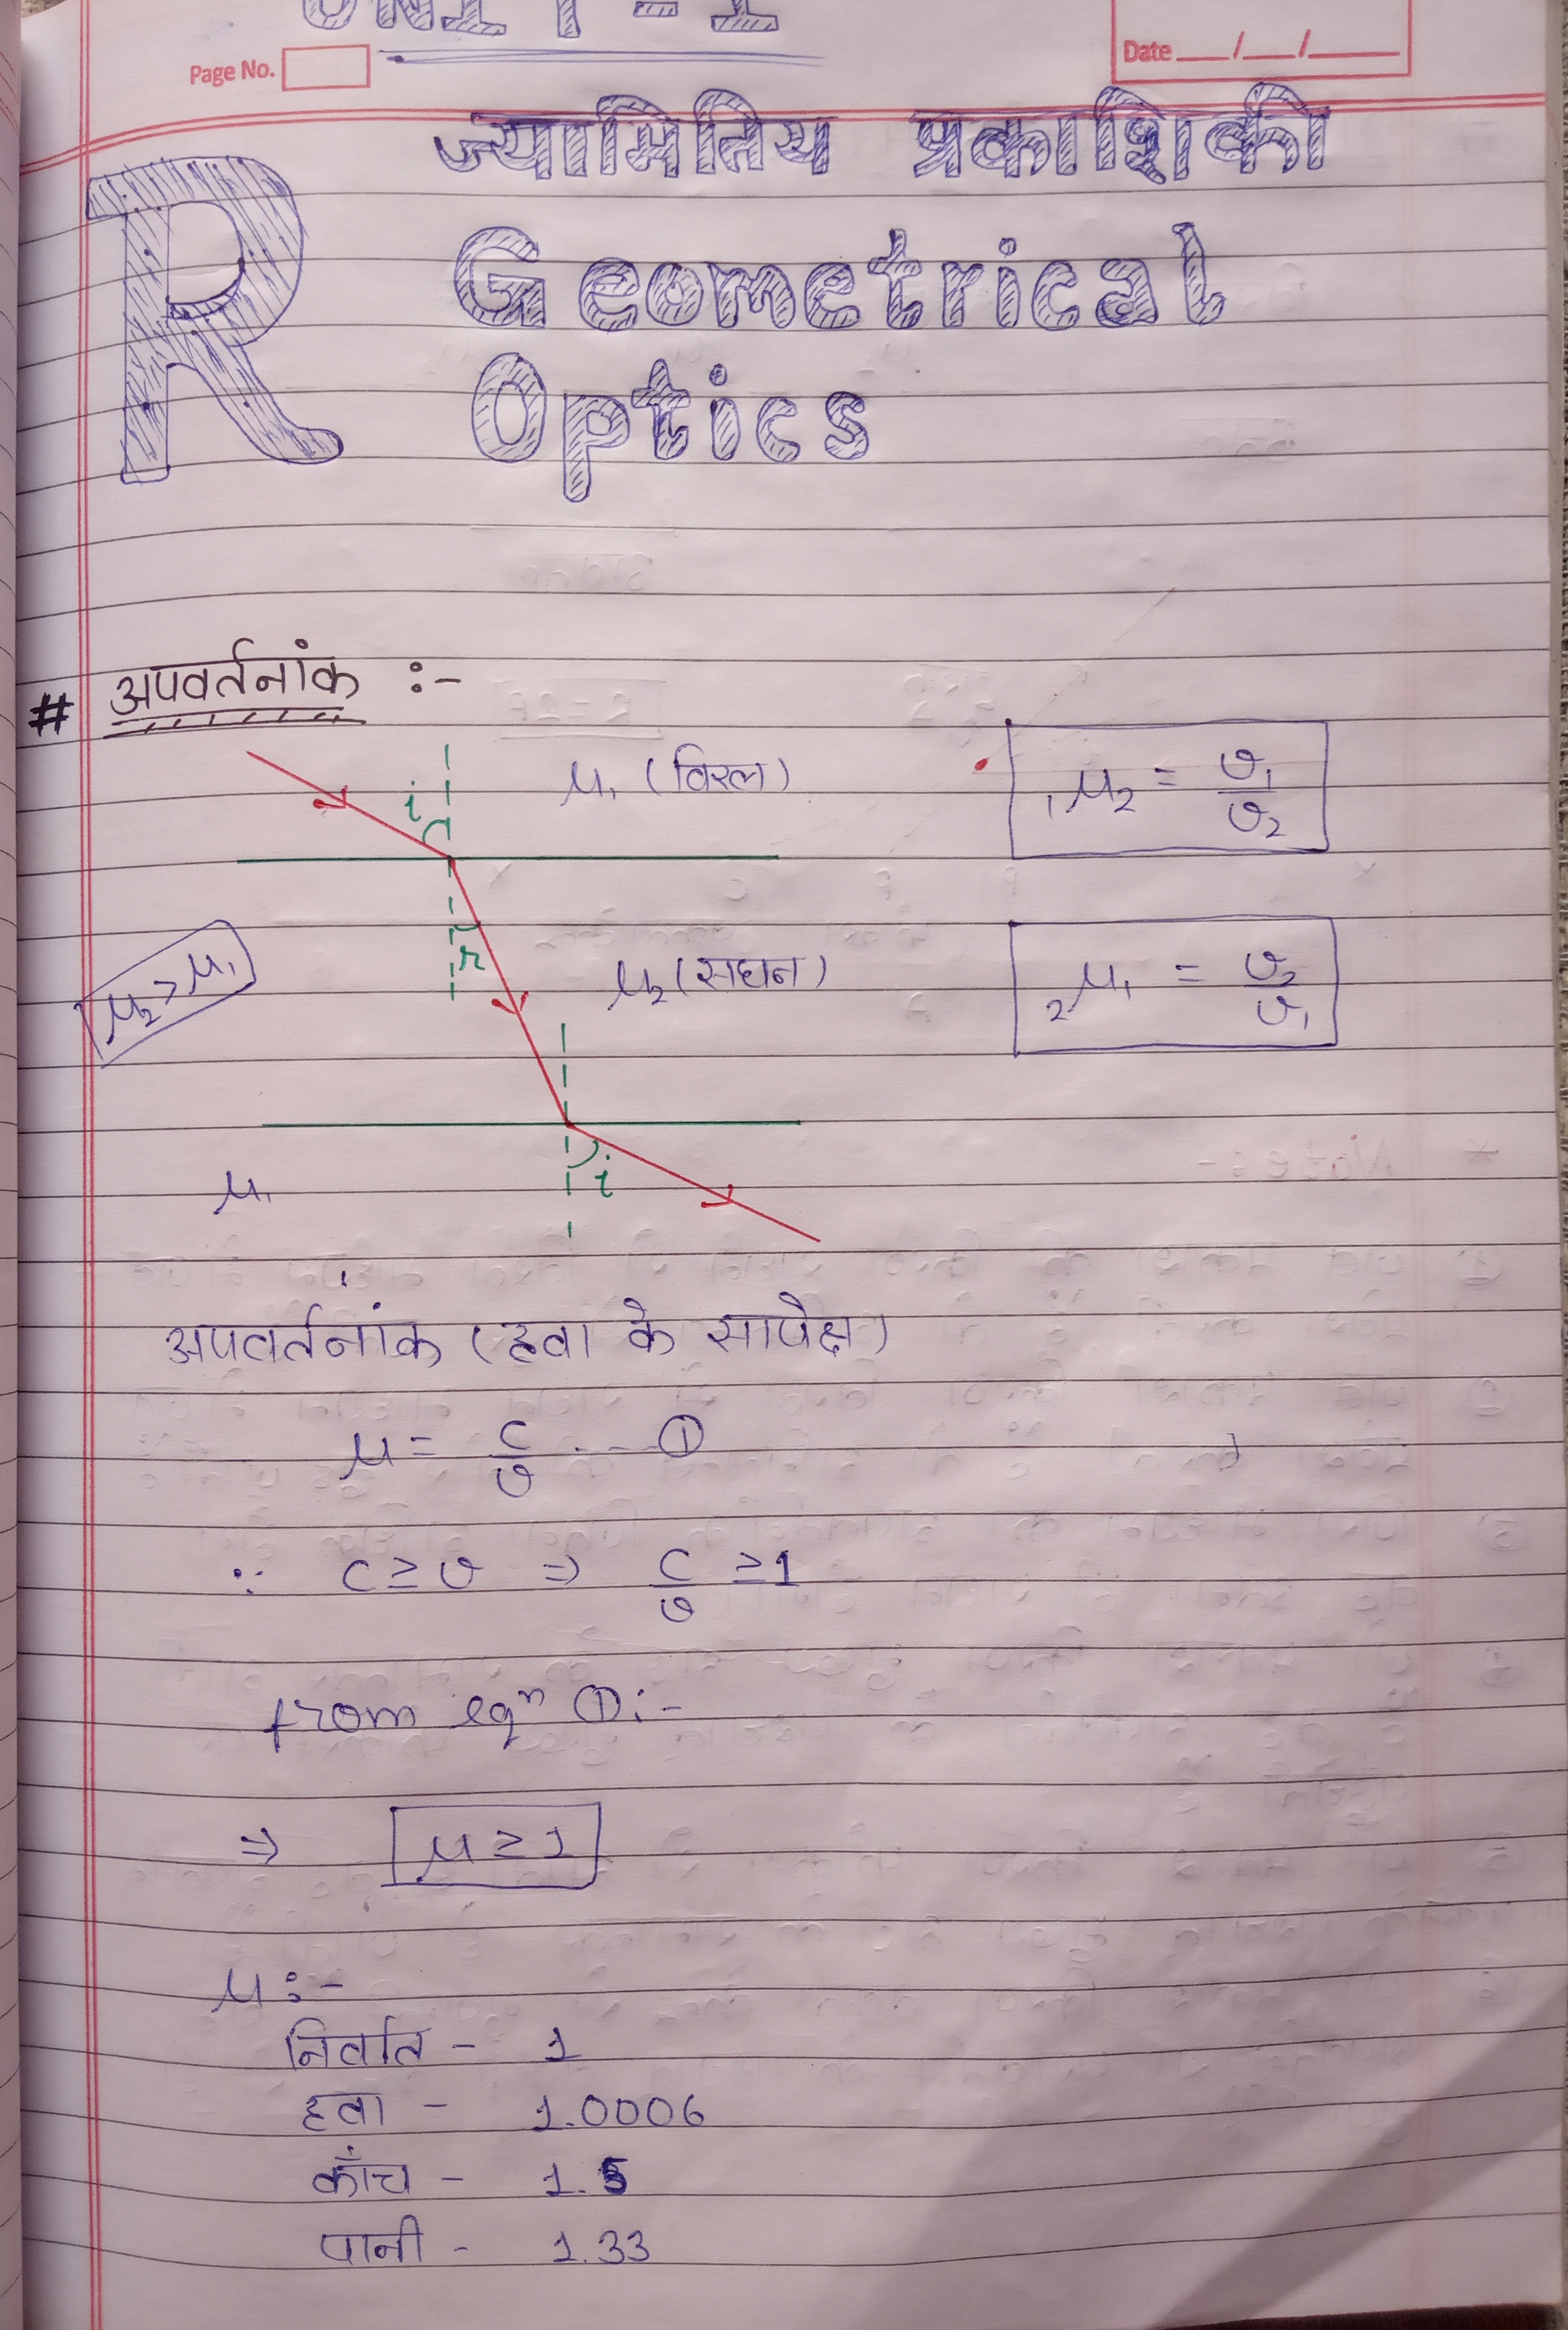 UNIT-1
Page No.
Date __/__/____
ज्यामितिय प्रकाशिकी
R
Geometrical
Optics
# अपवर्तनांक :-
i
μ₁ (विरल)
₁μ₂ = v₁/v₂
r
μ₂ (सघन)
μ₂ > μ₁
₂μ₁ = v₂/v₁
i
μ₁
अपवर्तनांक (हवा के सापेक्ष)
μ = c/v ... ①
∵ c ≥ v ⇒ c/v ≥ 1
from eqⁿ ①:-
⇒ μ ≥ 1
μ :-
निर्वात - 1
हवा - 1.0006
काँच - 1.5
पानी - 1.33